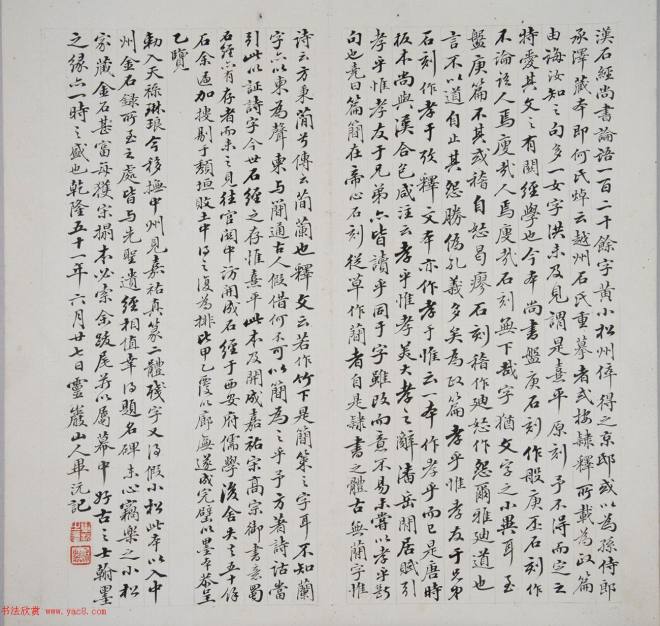 漢石經尚書論語一百二十餘字黃小松州倅得之京邸或以為孫侍郎
承澤藏本即何氏焯云越州石氏重摹者或按隸釋所載為政篇
由誨汝知之句多一女字洪未及見謂是熹平原刻予不得而定之
特愛其文之有關經學也今本尚書盤庚石刻作般庚丕石刻作
不論語人焉廋哉人焉廋哉石刻無下哉字猶文字之小異耳至
盤庚篇不其或稽自怒曷瘳石刻稽作迪怒作怨爾雅迪道也
言不以道自止其怨勝偽孔義多矣為政篇孝乎惟孝友于兄弟
石刻作孝于攷釋文本亦作孝于惟云一本作孝乎而已是唐時
板本尚與漢合包咸注云孝乎惟孝美大孝之辭潘岳閒居賦引
孝乎惟孝友于兄弟六皆讀乎同于字雖改而意不易未嘗以孝乎斷
句也堯曰篇簡在帝心石刻從草作蕳者自是隸書之體古無蕳字惟
詩云方秉蕳兮傳云蕳蘭也釋文云若作竹下是簡策之字耳不知蘭
字六以柬為聲東與闌通古人假借何不可以簡為之乎予方著詩詁當
引此以証詩字今世石經之存惟熹平此本及開成嘉祐宋高宗御書意蜀
石經六有存者而未之見往官關中訪開成石經于西安府儒學後舍失之五十餘
石余亟加搜剔于頹垣敗土中得之復為排比甲乙覆以廊廡遂成完璧以墨本恭呈
乙覽
勑入天祿琳琅今移撫中州見嘉祐真篆二體殘字又得假小松此本以入中
州金石錄所至之處皆與先聖遺經相值幸得題名碑末心竊樂之小松
家藏金石甚富每獲宋搨本必索余跋尾并以屬幕中好古之士翰墨
之緣六一時之盛也乾隆五十一年六月廿七日靈巖山人畢沅記
书法欣赏 www.yac8.com